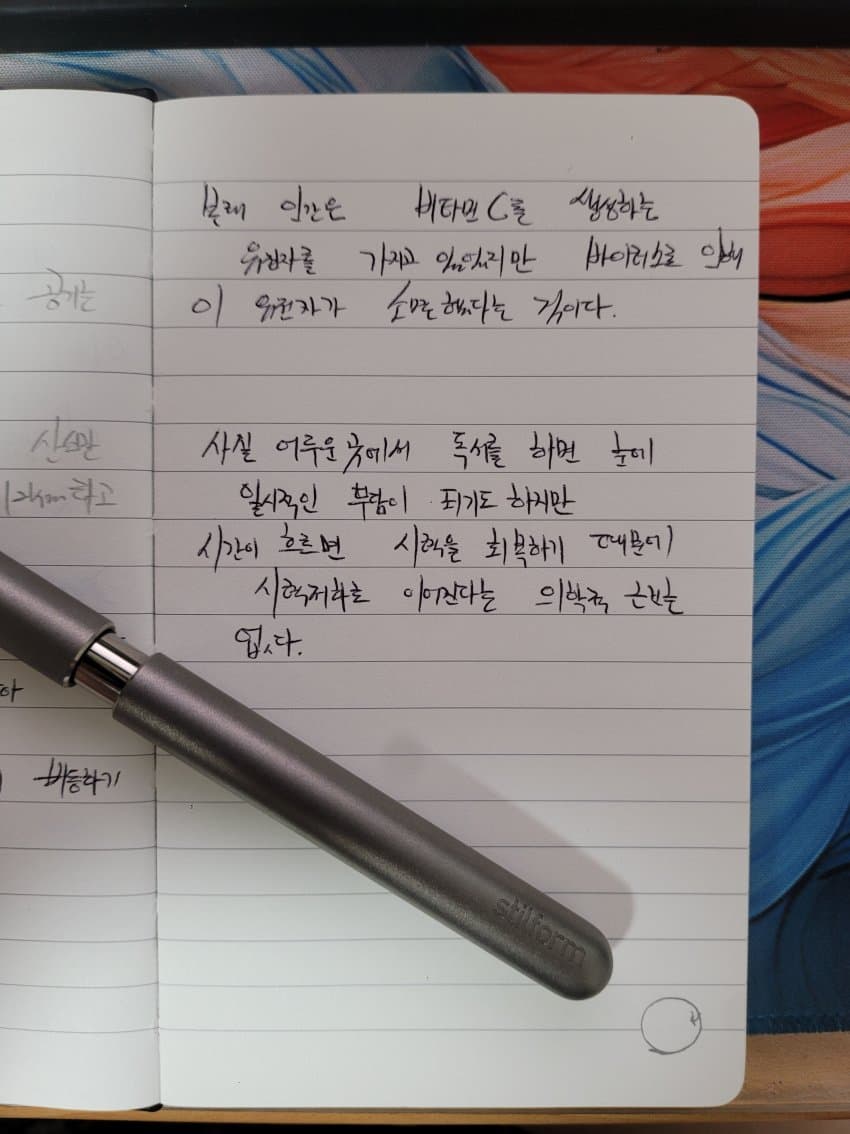 본래 인간은 비타민 C를 생성하는
유전자를 가지고 있었지만 바이러스로 인해
이 유전자가 소멸했다는 것이다.
사실 어두운 곳에서 독서를 하면 눈에
일시적인 부담이 되기도 하지만
시간이 흐르면 시력을 회복하기 때문에
시력저하로 이어진다는 의학적 근거는
없다.
공기는
산소만
하고
stilform